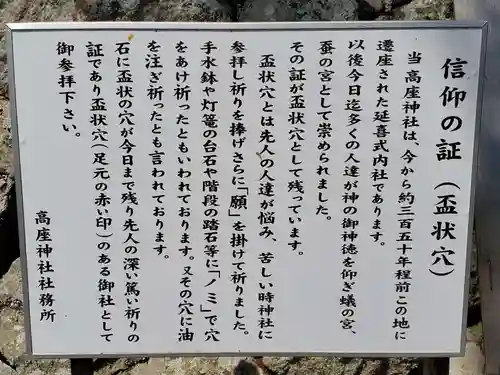 信仰の証(盃状穴)
当高座神社は、今から約三百五十年程前この地に
遷座された延喜式内社であります。
以後今日迄多くの人達が神の御神徳を仰ぎ蟻の宮、
蚕の宮として崇められました。
その証が盃状穴として残っています。
盃状穴とは先人の人達が悩み、苦しい時神社に
参拝し祈りを捧げさらに「願」を掛けて祈りました。
手水鉢や灯篭の台石や階段の踏石等に「ノミ」で穴
をあけ祈ったともいわれております。又その穴に油
を注ぎ祈ったとも言われております。
石に盃状の穴が今日まで残り先人の深い篤い祈りの
証であり盃状穴(足元の赤い印)のある御社として
御参拝下さい。
高座神社社務所